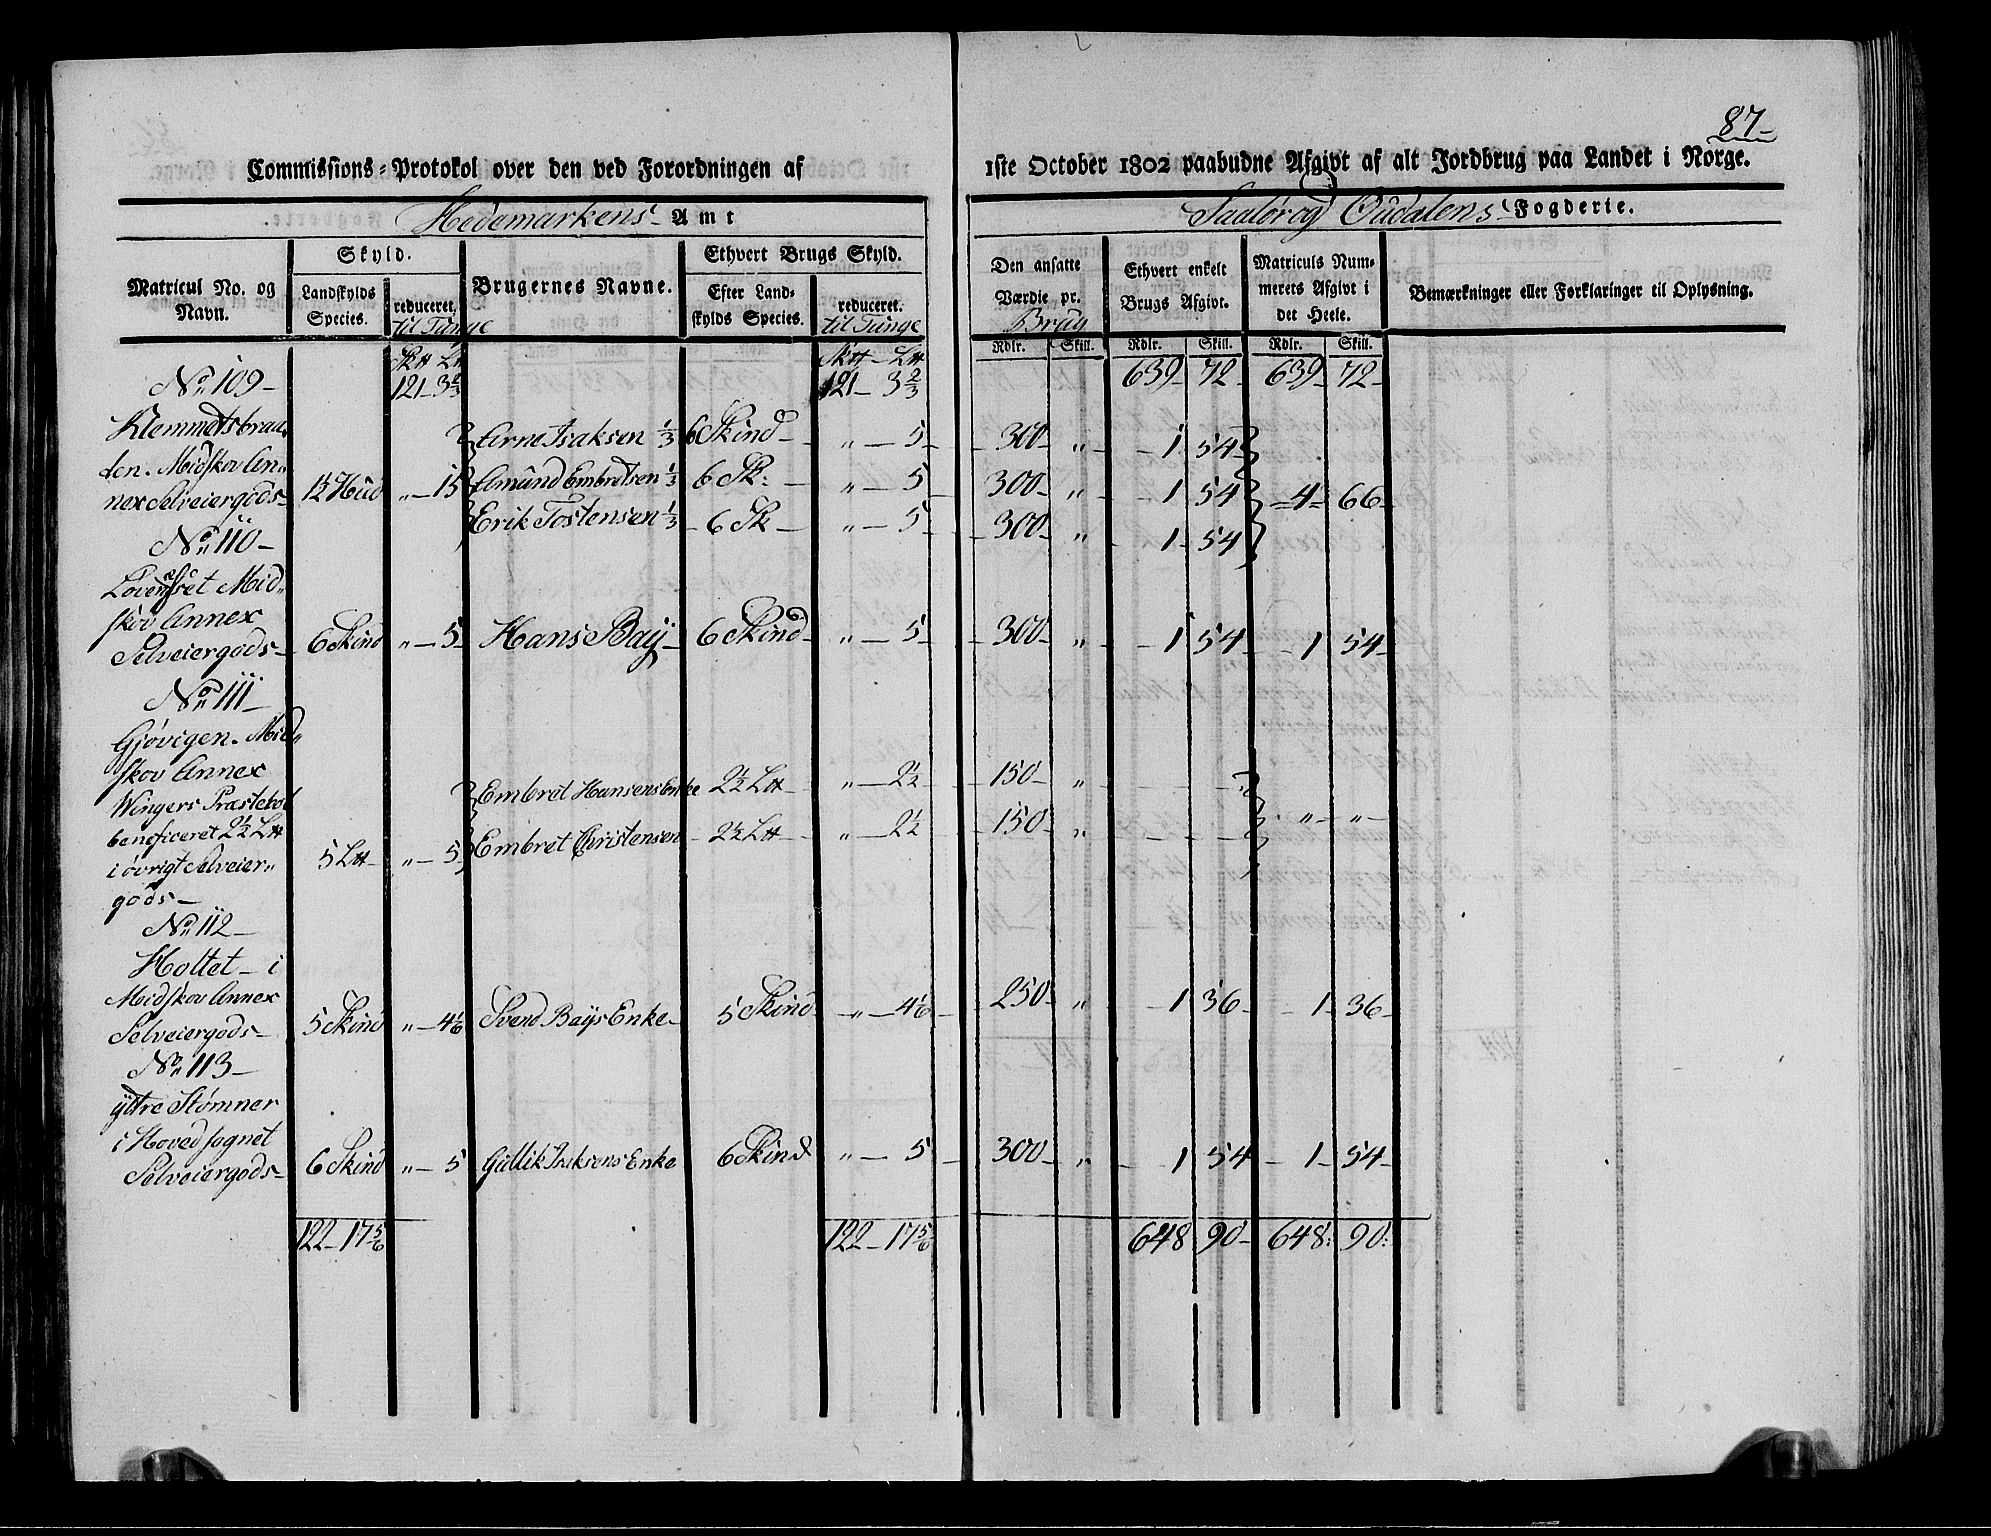 87-
Commissions-Protokol over den ved Forordningen af 1ste October 1802 paabudne Afgivt af alt Jordbrug paa Landet i Norge.
Hedemarkens Amt
Saalør og Oudalens Fogderie.
Matricul No. og Navn.
Skyld.
Landskylds Species.
reduceret. til Tunge
Brugernes Navne.
Ethvert Brugs Skyld.
Efter Landskylds Species.
reduceret. til Tunge
Den ansatte Værdie pr. Brug
Ethvert enkelt Brugs Afgivt.
Matriculs Nummerets Afgivt i det Heele.
Bemærkninger eller Forklaringer til Oplysning.
Rdlr. Skill. Rdlr. Skill. Rdlr. Skill.
No 109- 121-3 2/3 121-3 2/3 639-72- 639-72-
Klemmetsbraa-
den. Midskov An-
nex Selveiergods- 1½ Hud „-15
Arne Isaksen 1/3 6 Skind- „-5- 300- „ 1 54
Amund Embretsen 1/3 6 Sk: - „-5- 300- „ -1 54 -4- 66-
Erik Tostensen 1/3 -6 Sk- „-5- 300- „ -1- 54
No 110-
Mid-
skov Annex
Selveiergods- 6 Skind „-5- Hans Baÿ- 6 Skind- „-5- 300- „ -1 54- -1 54-
No 111-
Gjøvigen. Mid-
skov Annex
Wingers Præstebol
beneficeret 2½ L℔
i øvrigt Selveier-
gods- 5 L℔- „-5
Embret Hansens Enke 2½ L℔ „-2½ 150- „ - -
Embret Christensen - 2½ L℔- „-2½ 150- „ - - „-„-
No 112-
Holtet- i
Midskov Annex
Selveiergods- 5 Skind „-4 1/6 Svend Baÿs Enke- 5 Skind- „-4 1/6 250- „ -1 36- -1 36-
No 113-
ÿtre Stømner
i Hoved sognet
Selveiergods- 6 Skind „-5 Gullik Isaksens Enke 6 Skind „-5 300- „ -1 54- 1-54-
122-17 5/6 122-17 5/6 648 90- 648: 90: